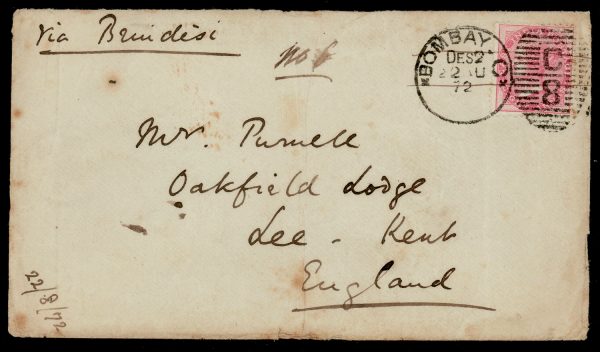 via Brindisi
No 6
BOMBAY
DES2
22 AU
72
C
8
Mr. Purnell
Oakfield Lodge
Lee - Kent
England
22/8/72